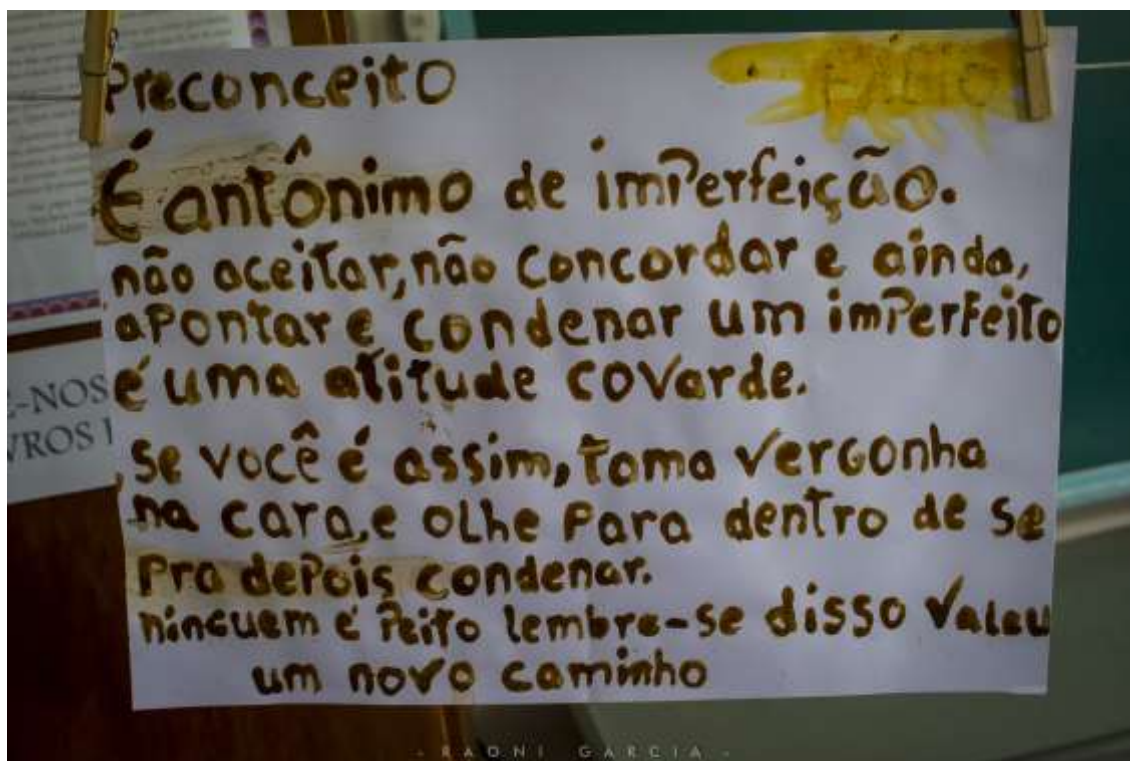 Preconceito
É antônimo de imperfeição.
não aceitar, não concordar e ainda,
apontar e condenar um imperfeito
é uma atitude covarde.
se você é assim, toma vergonha
na cara, e olhe para dentro de se
pra depois condenar.
ninguem é Peito lembre-se disso valeu
um novo caminho
-NOS
VROS
- RAONI GARCIA -